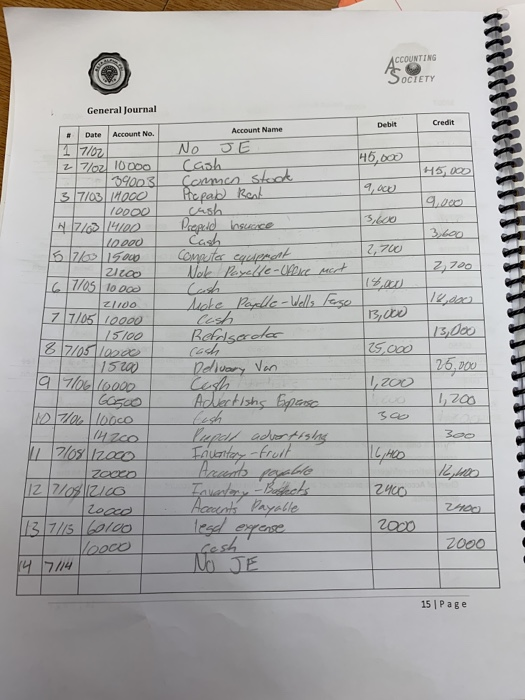 ACCOUNTING
SOCIETY
General Journal
# Date Account No. Account Name Debit Credit
1 7/02 No JE
2 7/02 10000 Cash 45,000
39003 Common Stock 45,000
3 7/03 14000 Prepaid Rent 9,000
10000 Cash 9,000
4 7/03 14100 Prepaid Insurance 3,600
10000 Cash 3,600
5 7/03 15000 Computer equipment 2,700
21200 Note Payable-Office mart 2,700
6 7/05 10000 Cash 18,000
21100 Note Payable-Wells Fargo 18,000
7 7/05 10000 Cash 13,000
15100 Refrigerator 13,000
8 7/05 10000 Cash 25,000
15200 Delivery Van 25,000
9 7/06 10000 Cash 1,200
60500 Advertising Expense 1,200
10 7/06 10000 Cash 300
14200 Prepaid advertising 300
11 7/08 12000 Inventory-Fruit 16,400
20000 Accounts payable 16,400
12 7/08 12100 Inventory-Baskets 2400
20000 Accounts Payable 2400
13 7/13 60100 legal expense 2000
10000 Cash 2000
14 7/14 No JE
15 | Page